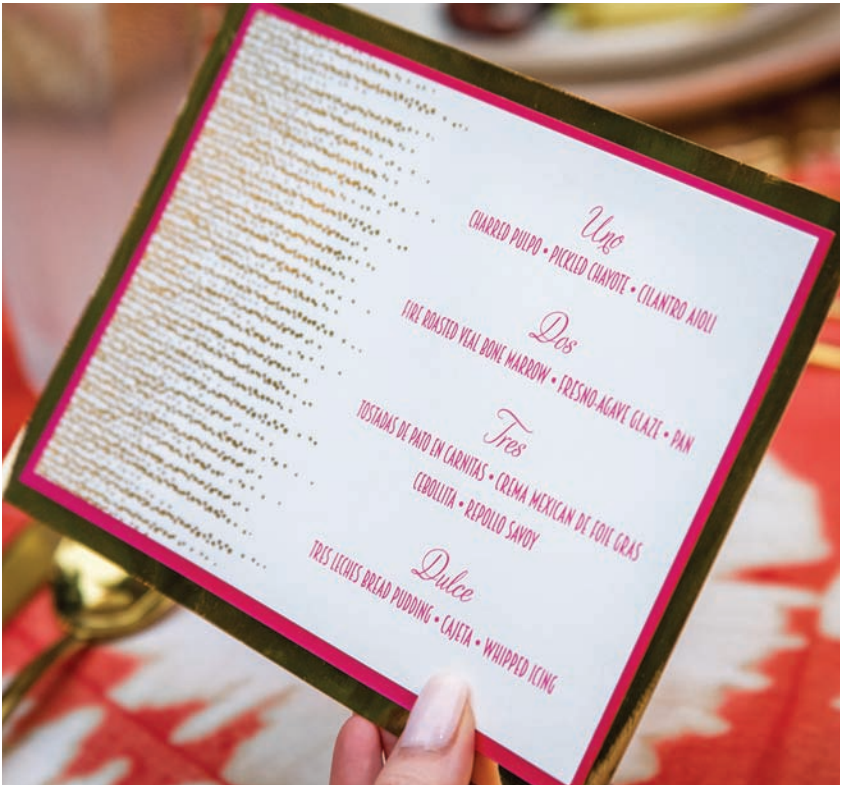 Uno
CHARRED PULPO • PICKLED CHAYOTE • CILANTRO AIOLI
Dos
FIRE ROASTED VEAL BONE MARROW • FRESNO-AGAVE GLAZE • PAN
Tres
TOSTADAS DE PATO EN CARNITAS • CREMA MEXICAN DE FOIE GRAS
CEBOLLITA • REPOLLO SAVOY
Dulce
TRES LECHES BREAD PUDDING • CAJETA • WHIPPED ICING